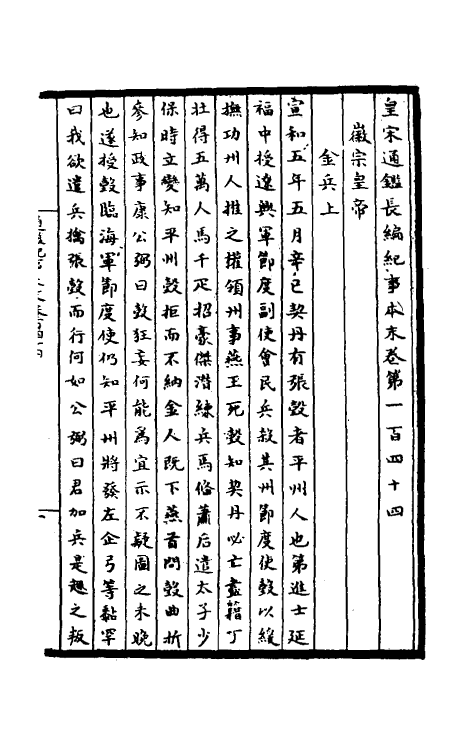 皇宋通鑑長編紀事本末卷第一百四十四
徽宗皇帝
金兵上
宣和五年五月辛巳契丹有張瑴者平州人也第進士延
福中授遼興軍節度副使會民兵殺其州節度使瑴以緩
撫功州人推之權領州事燕王死瑴知契丹必亡盡籍丁
壯得五萬人馬千疋招豪傑潛練兵馬俻蕭后遣太子少
保時立愛知平州瑴拒而不納金人既下燕首問瑴曲折
參知政事康公弼曰瑴狂妄何能為宜示不疑圖之未晚
也遂授瑴臨海軍節度使仍知平州將發左企弓等黏罕
曰我欲遣兵擒張瑴而行何如公弼曰君加兵是趣之叛